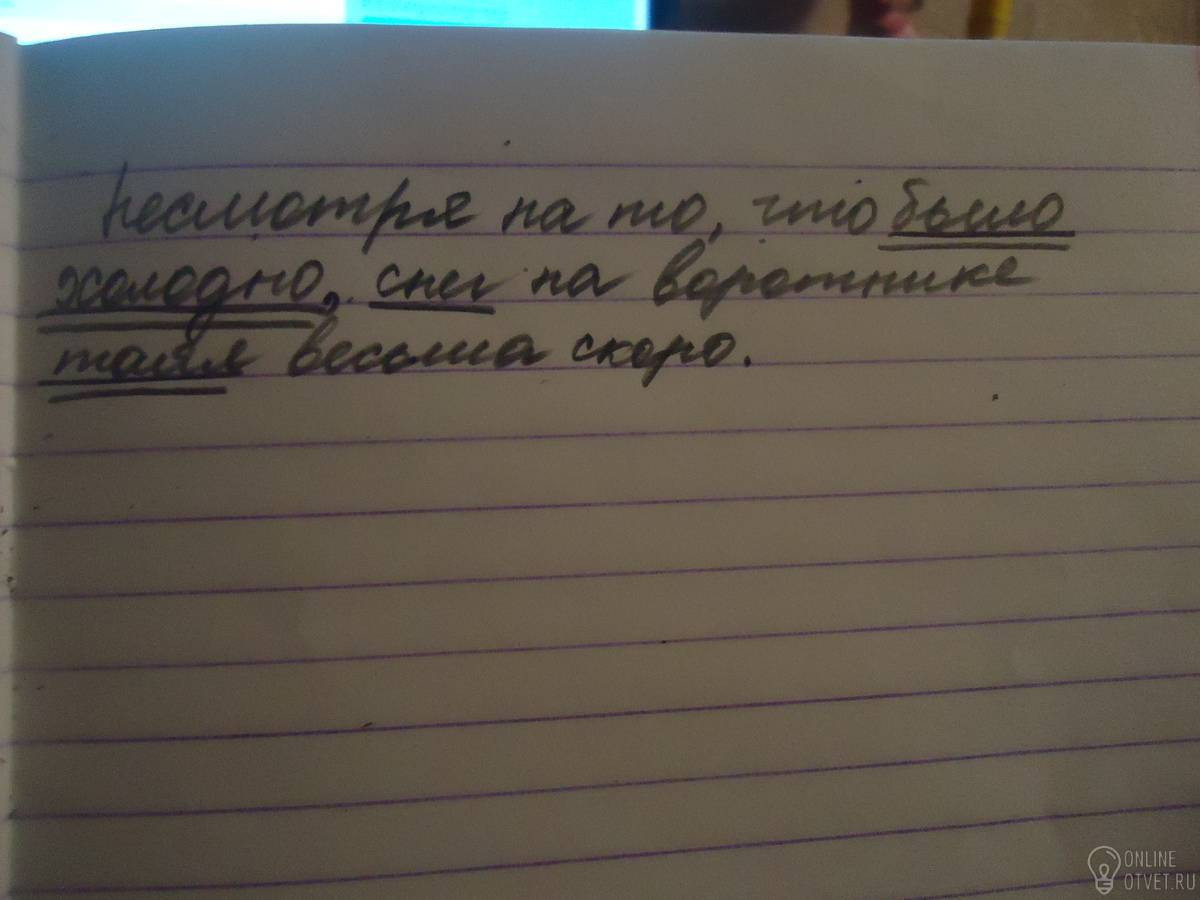 Несмотря на то, что было
холодно, снег на воротнике
таял весьма скоро.
ONLINE
OTVET.RU